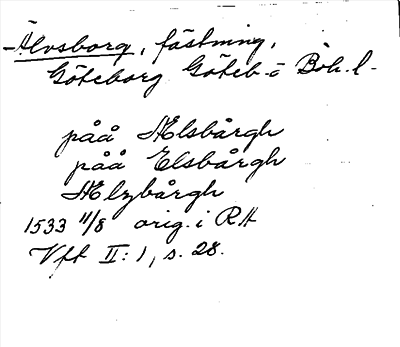 -Älvsborg, fästning,
Göteborg Göteb. o Boh. l-
påå Ælsbårgh
påå Elsbårgh
Ælzbårgh
1533 11/8 orig. i RA
Vft II:1, s. 28.